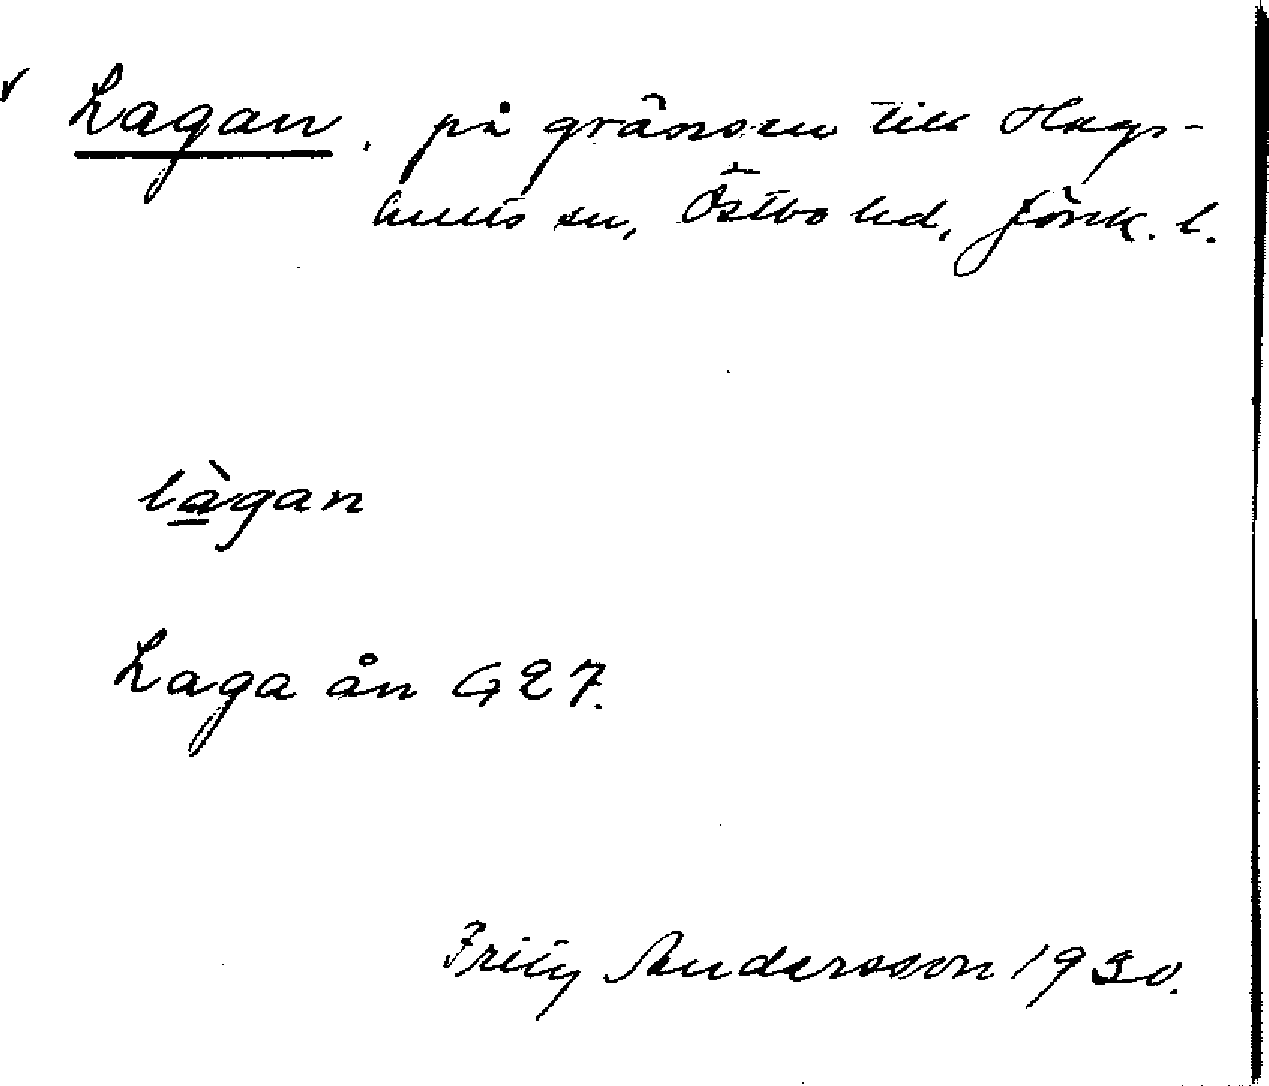 Lagan, på gränsen till Hags-
hults sn, Östbo hd, Jönk. l.
làgan
Laga ån G27.
Fritz Andersson 1930.